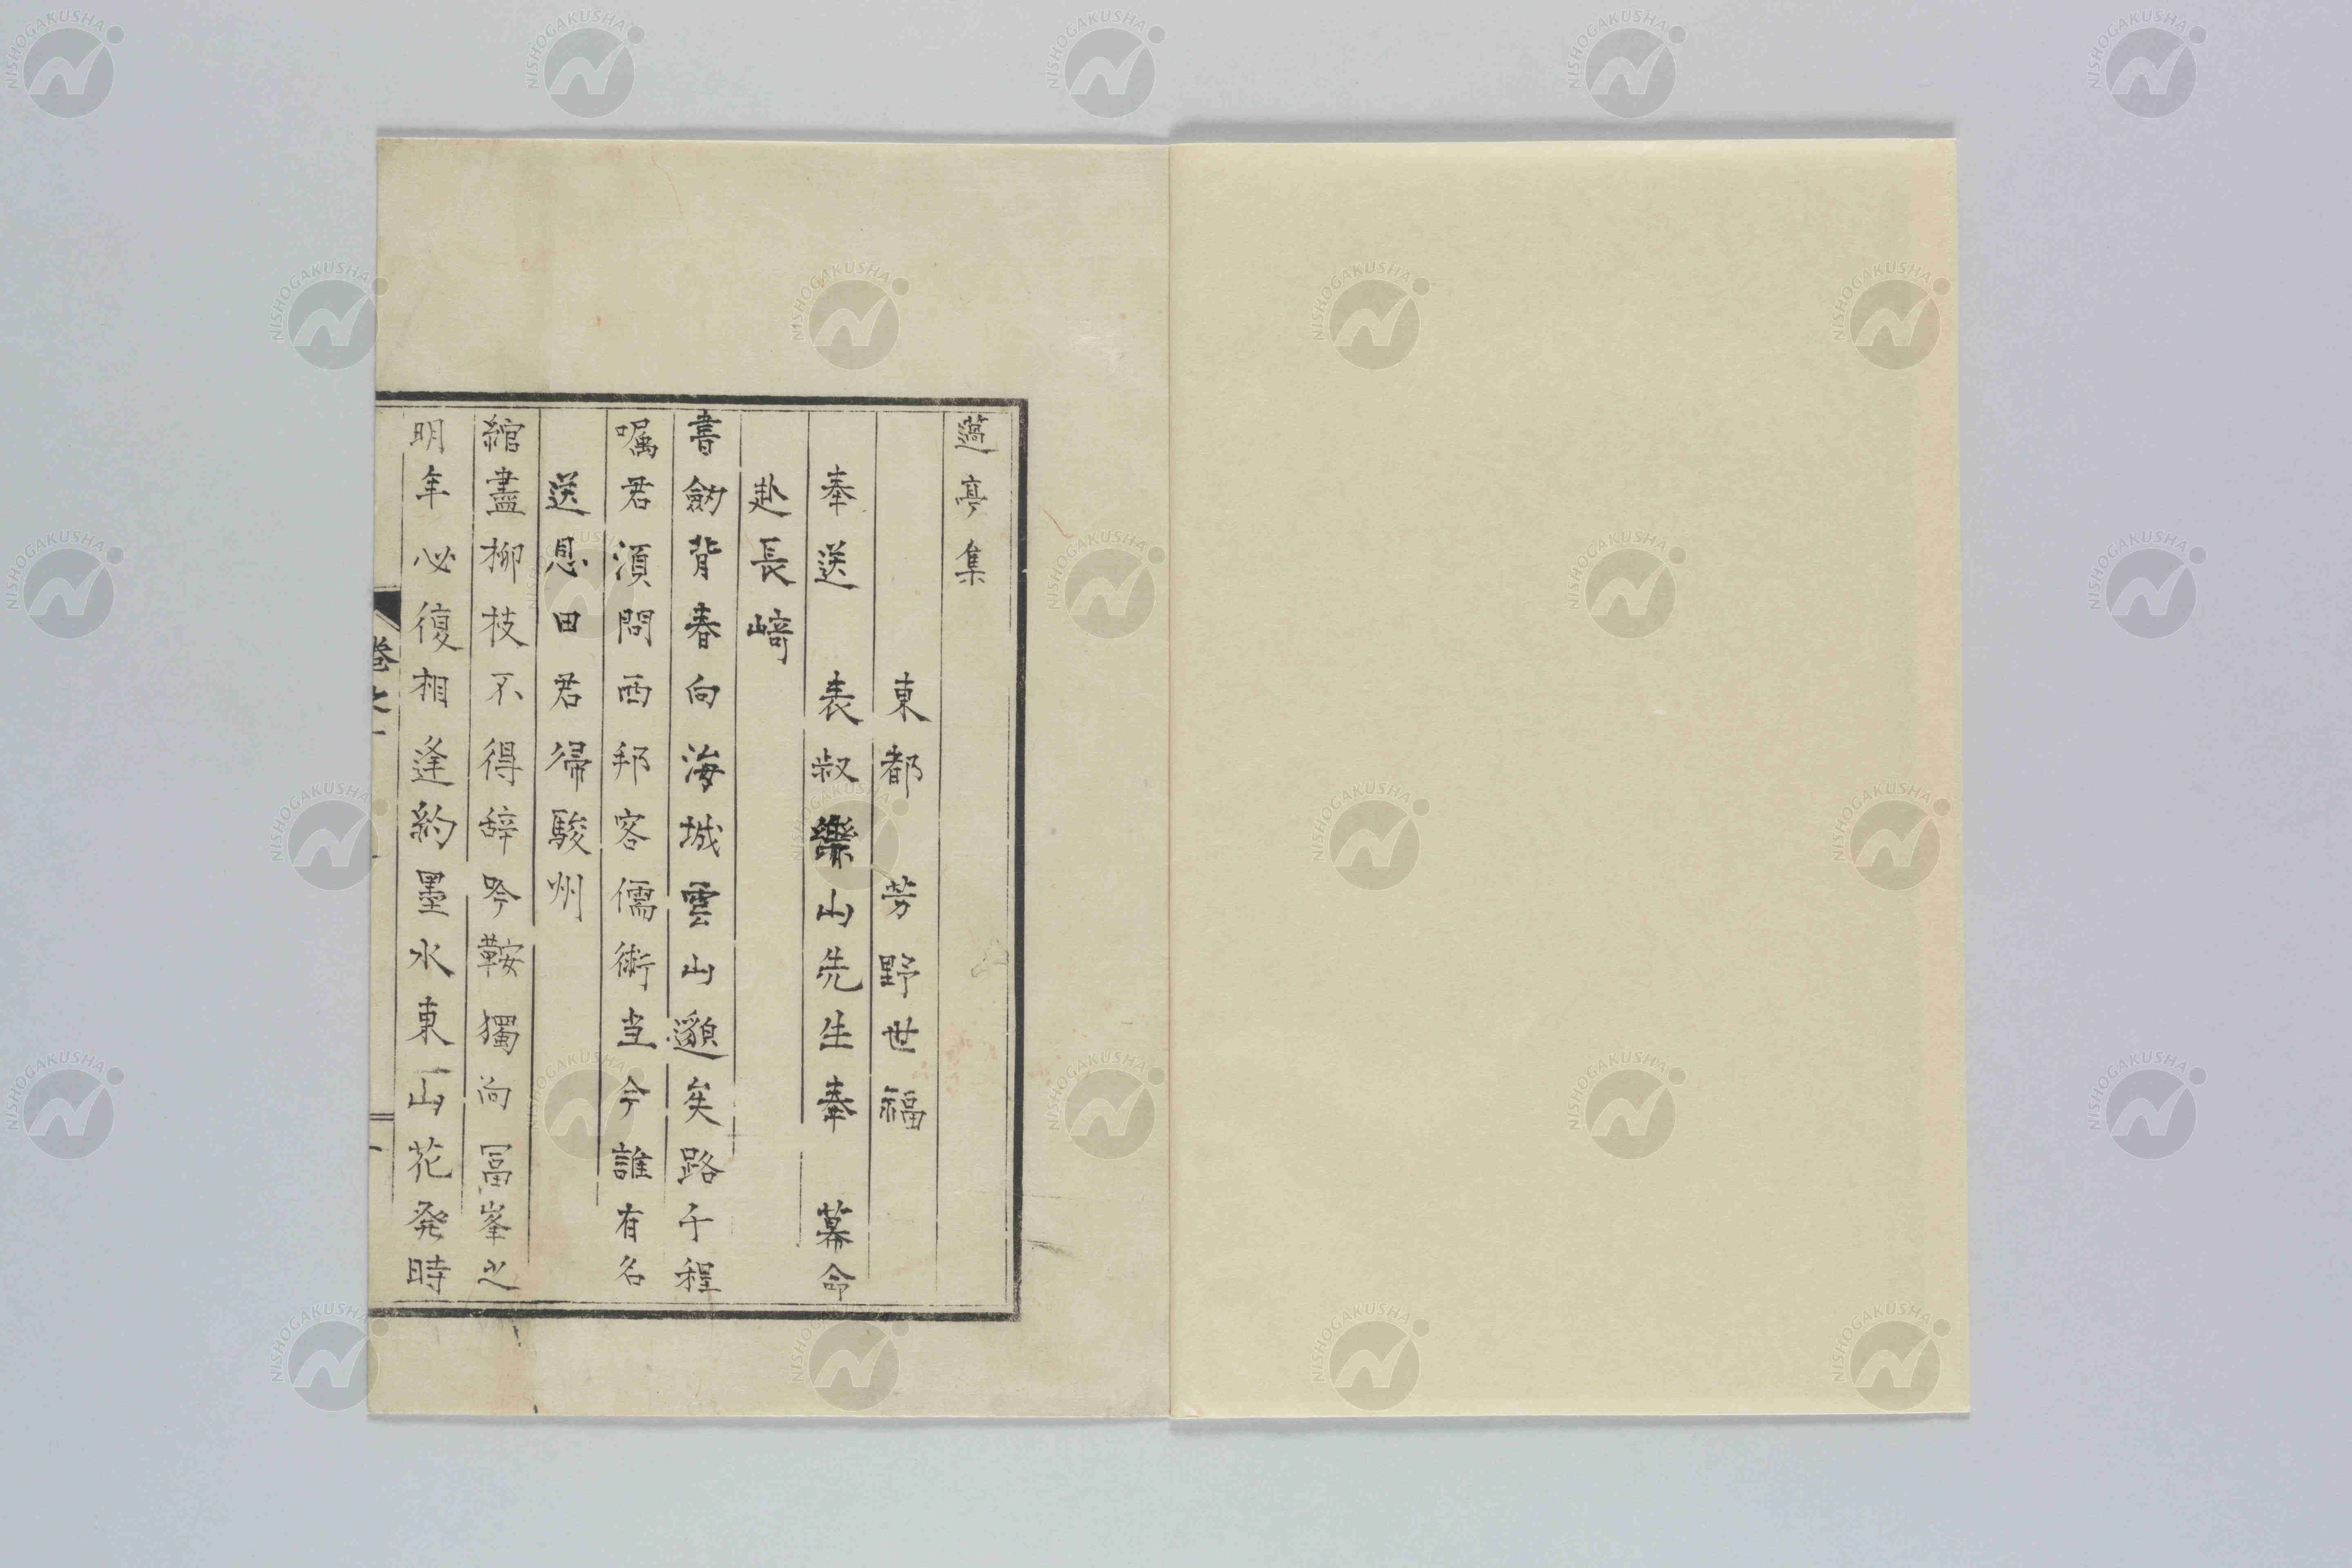 薖亭集
東都 芳野世福
奉送 表叔樂山先生奉 幕命
赴長﨑
書劒背春向海城雲山邈矣路千程
嘱君湏問西邦客儒術当今誰有名
送恩田君帰駿州
綰盡柳枝不得辞吟鞍獨向冨峯之
明年必復相逢約墨水東山花発時
巻之一
NISHOGAKUSHA